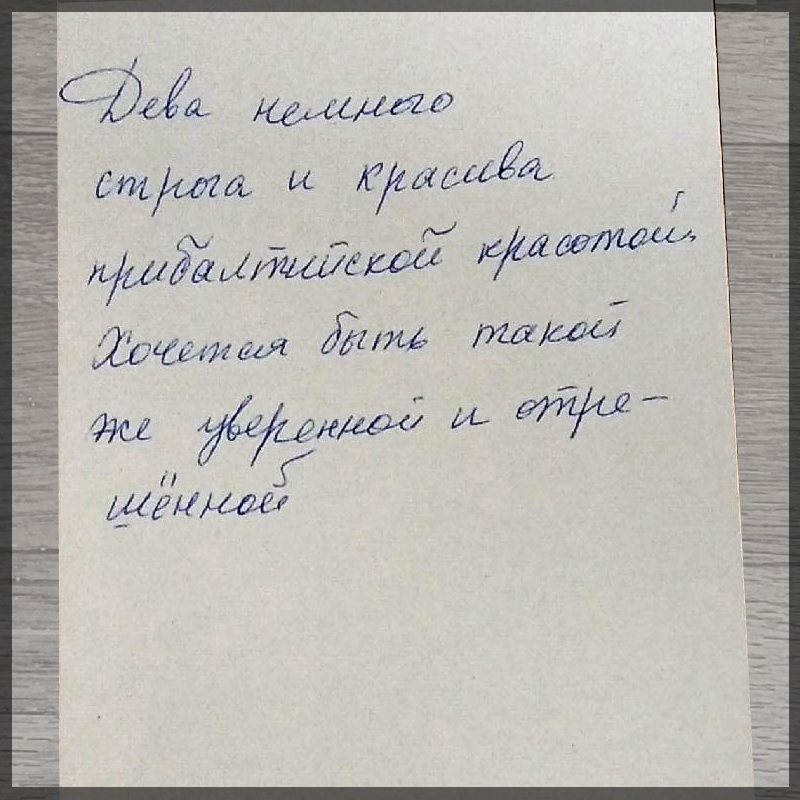 Дева немного
строга и красива
прибалтийской красотой.
Хочется быть такой
же уверенной и отре-
шённой